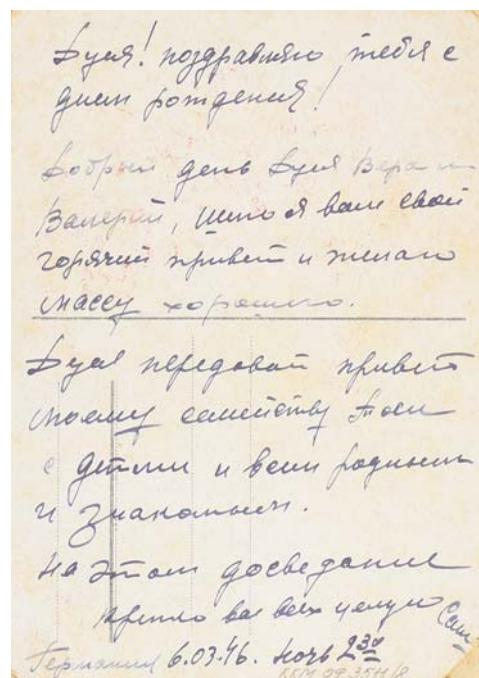 Дуся! поздравляю тебя с
днем рождения!
Добрый день Дуся Вера и
Валерий, шлю я вам свой
горячий привет и желаю
массу хорошего.
Дуся передавай привет
моему семейству Тосе
с детьми и всем родным
и знакомым.
на этом досведание
крепко вас всех целую
Германия 6.03.46. ночь 2 30
ККМ ОФ 3511/8